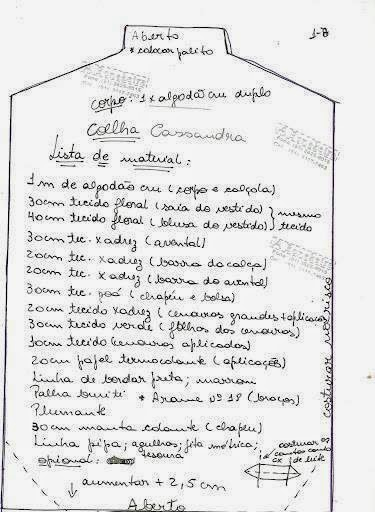 Aberto
* colocar palito
1-8
corpo: 1 x algodão cru duplo
Coelha Cassandra
Lista de material:
1 m de algodão cru (corpo e calçola)
30cm tecido floral (saia do vestido) } mesmo
40cm tecido floral (blusa do vestido) } tecido
30cm tec. xadrez (avental)
20cm tec. xadrez (barra da calça)
20cm tec. xadrez (barra do avental)
30cm tec. poá (chapéu e bolsa)
20cm tecido xadrez (cenouras grandes + aplicação)
30cm tecido verde (folhas das cenouras)
10cm tecido (cenouras aplicadas)
20cm papel termocolante (aplicações)
Linha de bordar preta; marrom
Palha buriti * Arame nº 18 (braços)
Plumante
30cm manta colante (chapéu)
Linha pipa; agulhas; fita métrica;
tesoura
opcional:
costurar os
cantos como
cx de leite
costurar no risco
↓ aumentar + 2,5 cm
Aberto